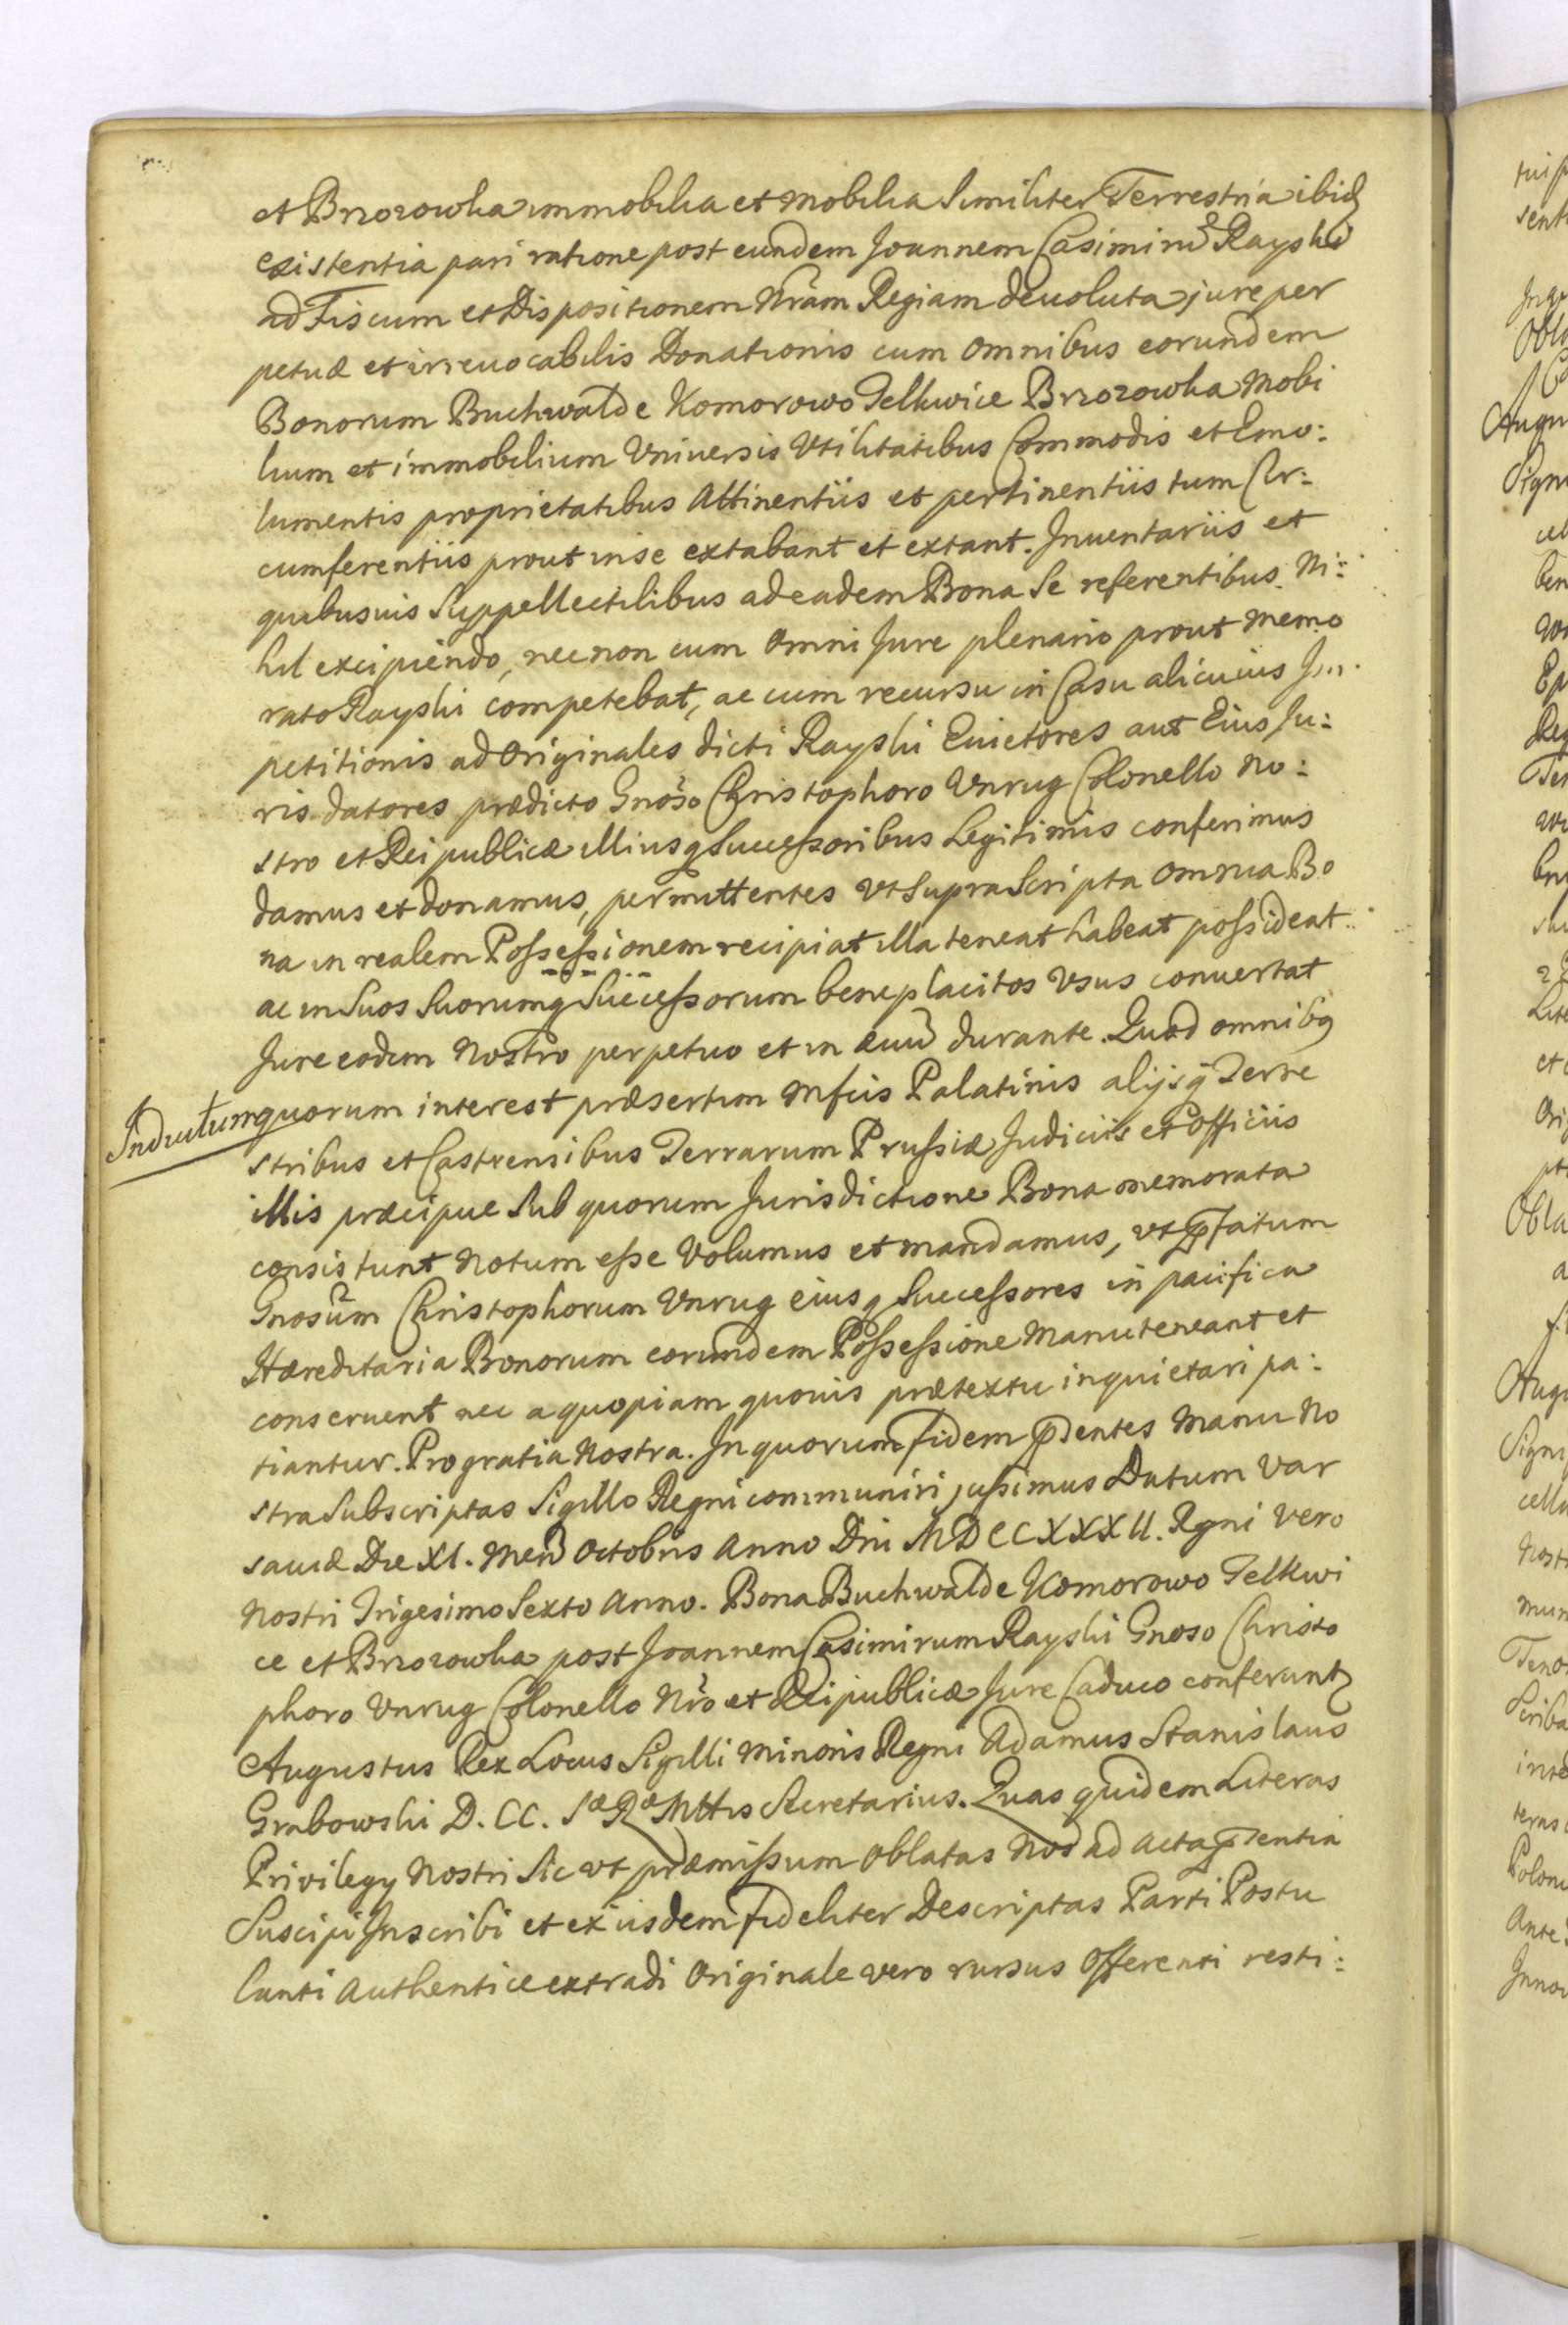 et Brzozowka immobilia et Mobilia Similiter Terrestria ibid
existentia pari ratione post eundem Joannem Casimirũ Rayski
ad Fiscum et Dispositionem Nrãm Regiam devoluta jure per
petuæ et irrevocabilis Donationis cum Omnibus eorundem
Bonorum Buchwalde Komorowo Telkwice Brzozowka Mobi
lium et immobilium Vniversis Vtilitatibus Commodis et Emo:
lumentis proprietatibus Attinentiis et pertinentiis tum Cir:
cumferentiis prout in se extabant et extant. Inuentariis et
quibusuis Suppellectilibus ad eadem Bona Se referentibus. Ni:
hil excipiendo, nec non cum Omni Jure plenario prout Memo
rato Rayski competebat, ac cum recursu in Casu alicuius Im
petitionis ad Originales dicti Rayski Euictores aut Eius Ju:
ris datores prædicto Gnõso Christophoro Vnrug Colonello No:
stro et Reipublicæ Illiusq Successoribus Legitimis conferimus
damus et donamus, permittentes vt Supra Scripta Omnia Bo
na in realem Possessionem recipiat illa teneat habeat possideat
ac in Suos Suorumq Successorum beneplacitos Vsus conuertat
Jure eodem Nostro perpetuo et in æuũ durante. Quod omnibq
Indultum quorum interest præsertim Mfcis Palatinis alijsq Terre
stribus et Castrensibus Terrarum Prussiæ Judiciis et Officiis
illis præcipue Sub quorum Jurisdictione Bona memorata
consistunt Notum esse Volumus et mandamus, vt pfatum
Gnosũm Christophorum Vnrug eiusq Successores in pacifica
Hæreditaria Bonorum eorundem Possessione Manuteneant et
conseruent nec a quopiam quouis prætextu inquietari pa:
tiantur. Pro gratia Nostra. In quorum fidem pdentes Manu No
stra Subscriptas Sigillo Regni communiri jussimus Datum Var
saviæ Die XI. Mens̃ Octobris Anno Dni MDCCXXXII. Rgni vero
Nostri Trigesimo Sexto Anno. Bona Buchwalde Komorowo Telkwi
ce et Brzozowka post Joannem Casimirum Rayski Gnoso Christo
phoro Vnrug Colonello Nrõ et Reipublicæ Jure Caduco conferunt
Augustus Rex Locus Sigilli Minoris Regni Adamus Stanislaus
Grabowski D. CC. Sæ Ræ Mttis Secretarius. Quas quidem Literas
Privilegy Nostri Sic vt præmissum Oblatas Nos ad Acta pdentia
Suscipi Inscribi et ex iisdem fideliter Descriptas Parti Postu
lanti Authentice extradi Originale vero rursus Offerenti resti: